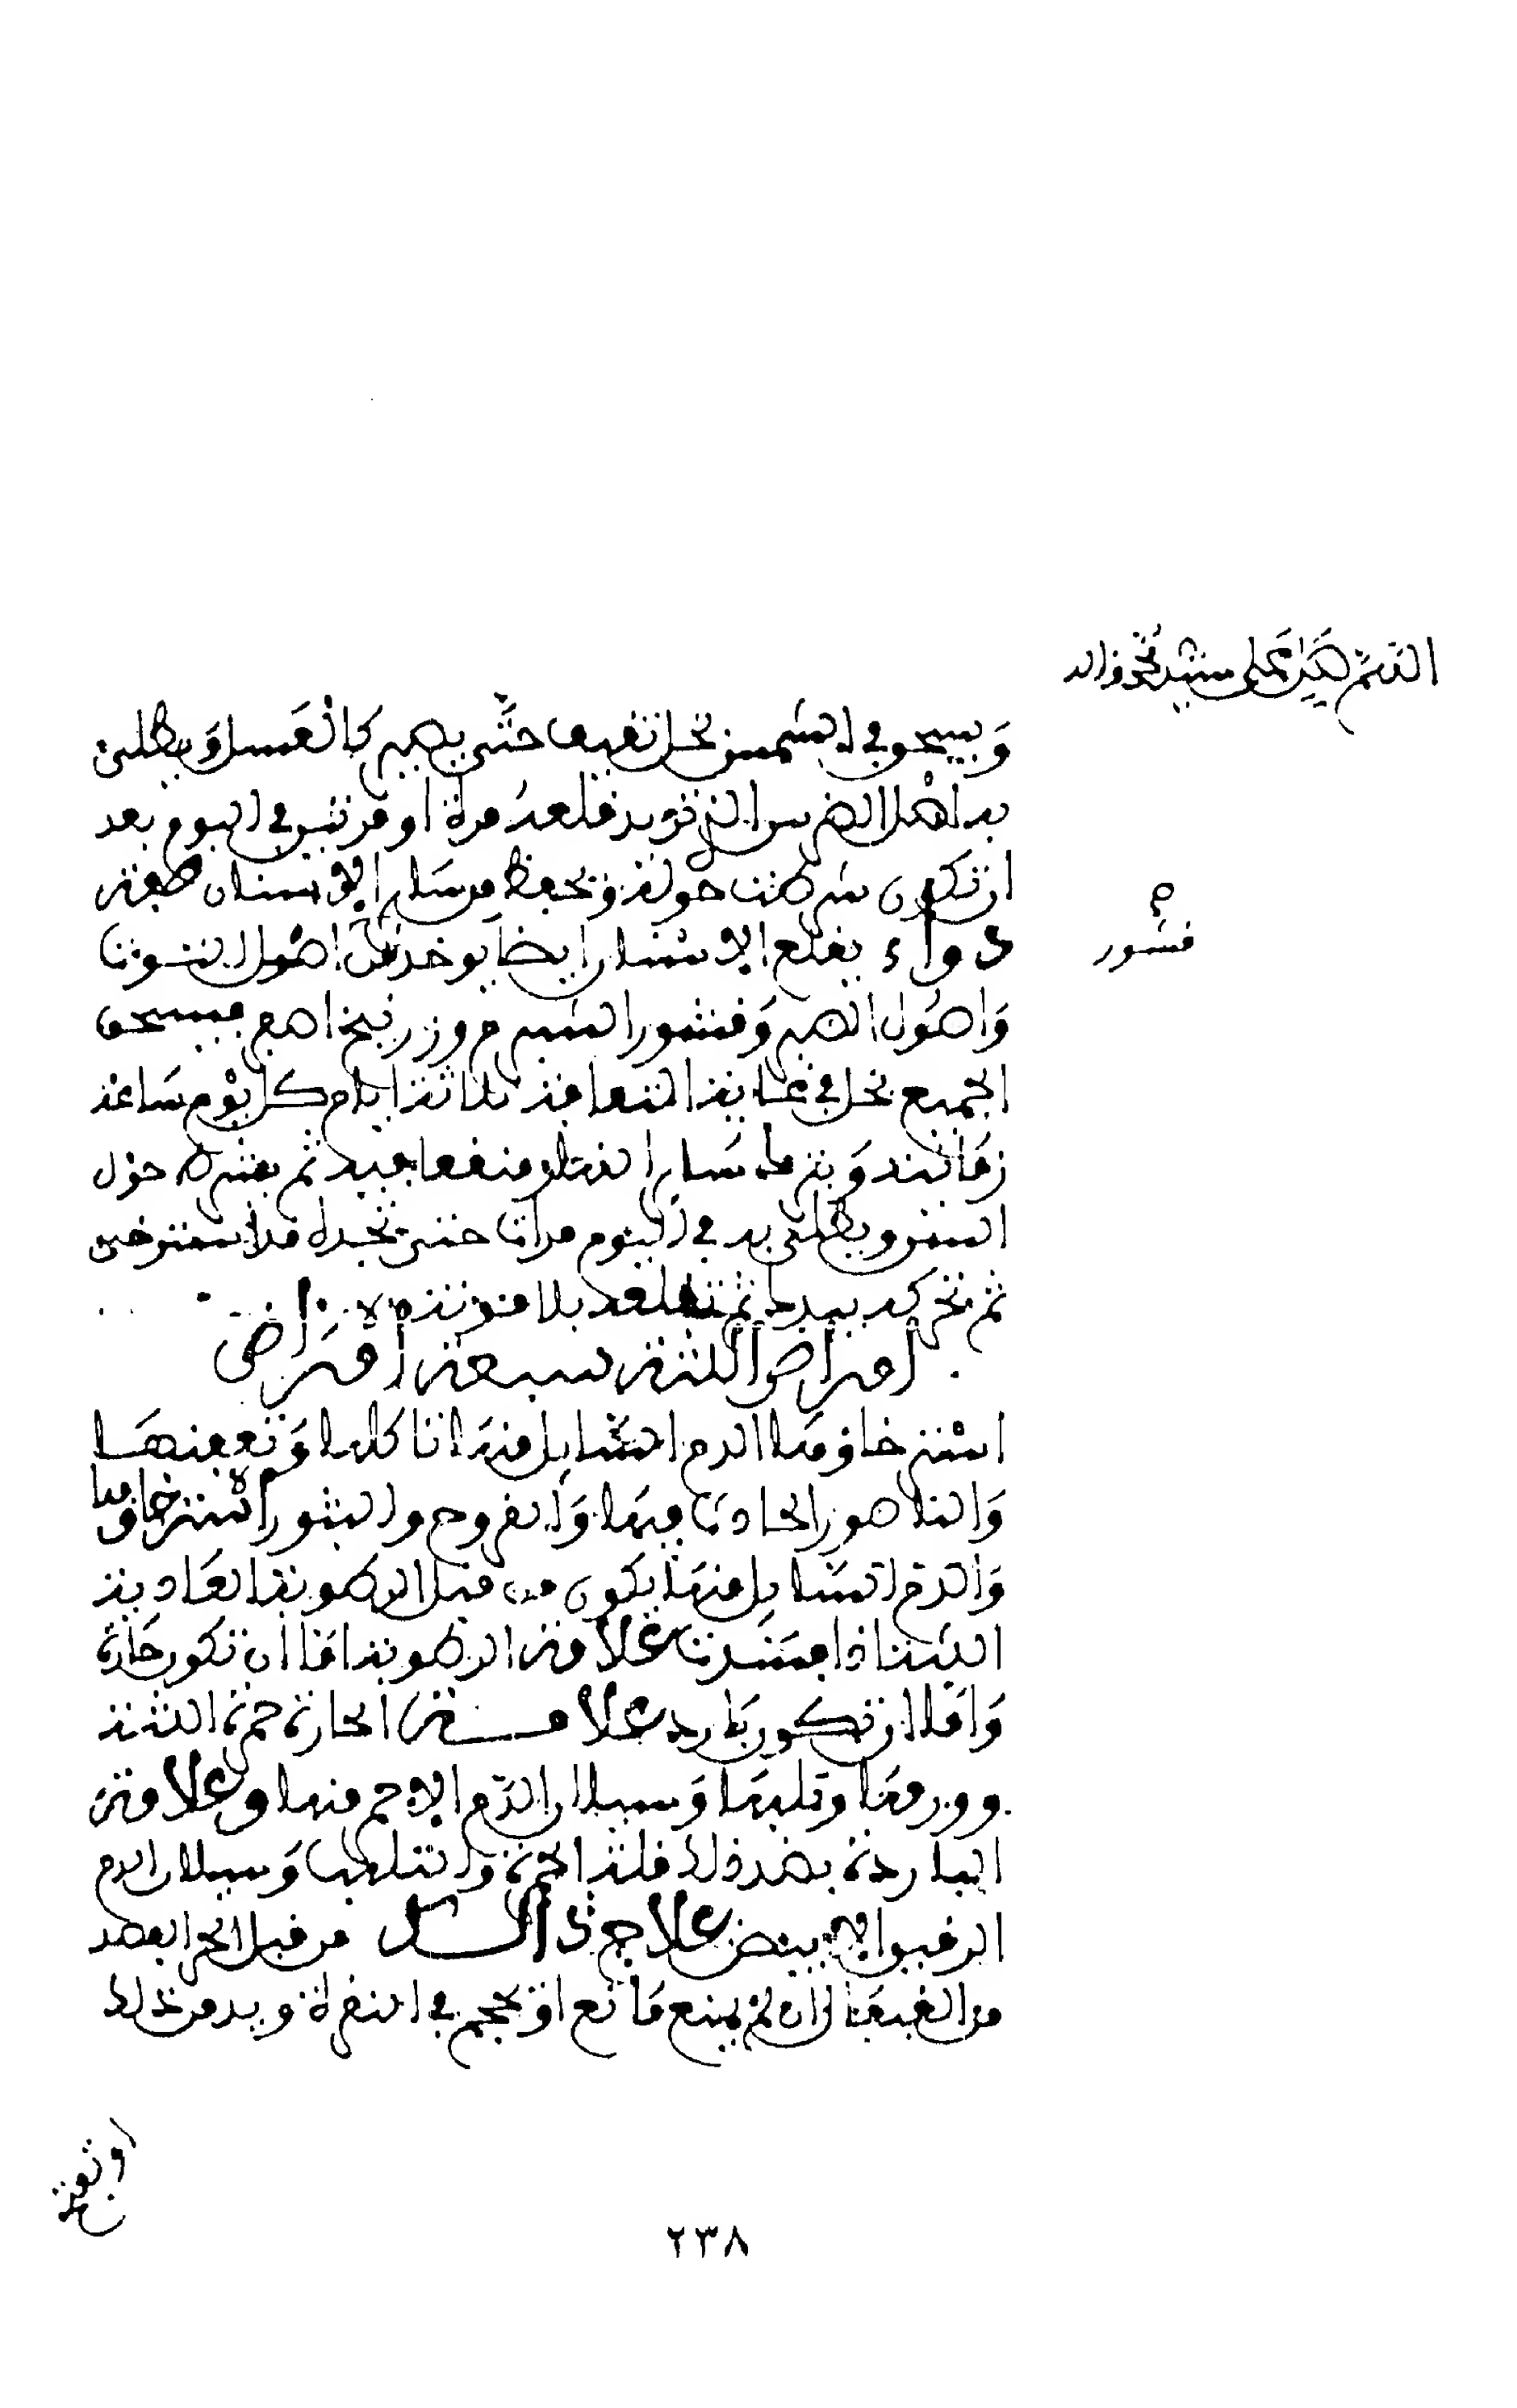 اللهم صل على سيدنا محمد واله
ويسحق في الشمس بخل ثقيف حتى يصير كالعسل ويطلى
به اصل الضرس الذي تريد قلعه مرة او مرتين في اليوم بعد
ان تكون شرطت حوله وتحفظ من ساير الاسنان صفة
دواء يقلع الاسنان ايضا يوخذ من اصول التوت
قشور
واصول الصبر وقشور الشبرم وزرنيخ اصفر فيسحق
الجميع بخل في غاية الثقافة ثلاثة ايام كل يوم ساعة
زمانية ويترك ساير النهار منقعا فيه ثم يشرط حول
السن ويطلى به في اليوم مرات حتى تجده قد استرخى
ثم تحركه بيدك ثم تقلعه بلا
امراض اللثة سبعة امراض
استرخاوها الدم السايل منها تاكلها وتعفنها
والناصور الحادث فيها والقروح والبثور استرخاوها
والدم السايل منها يكون من قبل الرطوبة العادية
اللثة اذا فسدت علامة الرطوبة اما ان تكون حارة
واما ان تكون باردة علامة الحارة حمرة اللثة
وورمها وتلهبها وسيلان الدم الاحمر منها وعلامة
الباردة بضد ذلك قلة الحمرة والتلهب وسيلان الدم
الرقيق الابيض علاج ذلك من قبل الحر الفصد
من القيفال ان لم يمنع مانع او يحجم في النقرة وبدم كذلك
٢٣٨